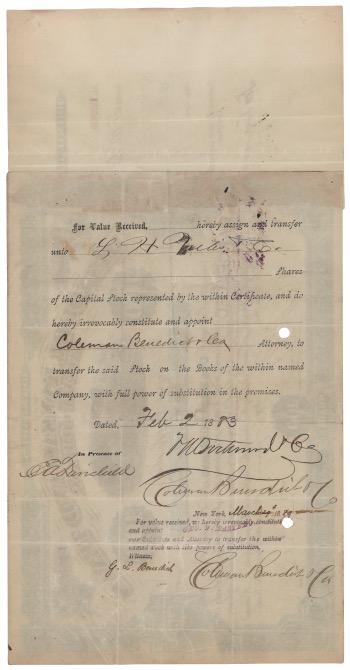 For Value Received, hereby assign and transfer
unto L. H. & Co
Shares
of the Capital Stock represented by the within Certificate, and do
hereby irrevocably constitute and appoint
Coleman Benedict & Co Attorney, to
transfer the said Stock on the Books of the within named
Company, with full power of substitution in the premises.
Dated, Feb 2 1883
In Presence of
& Co
Coleman Benedict & Co
New York, March
For value received, we hereby irrevocably constitute
and appoint
our Substitute and Attorney to transfer the within
named stock with like powers of substitution.
Witness:
G. L. Benedict
Coleman Benedict & Co